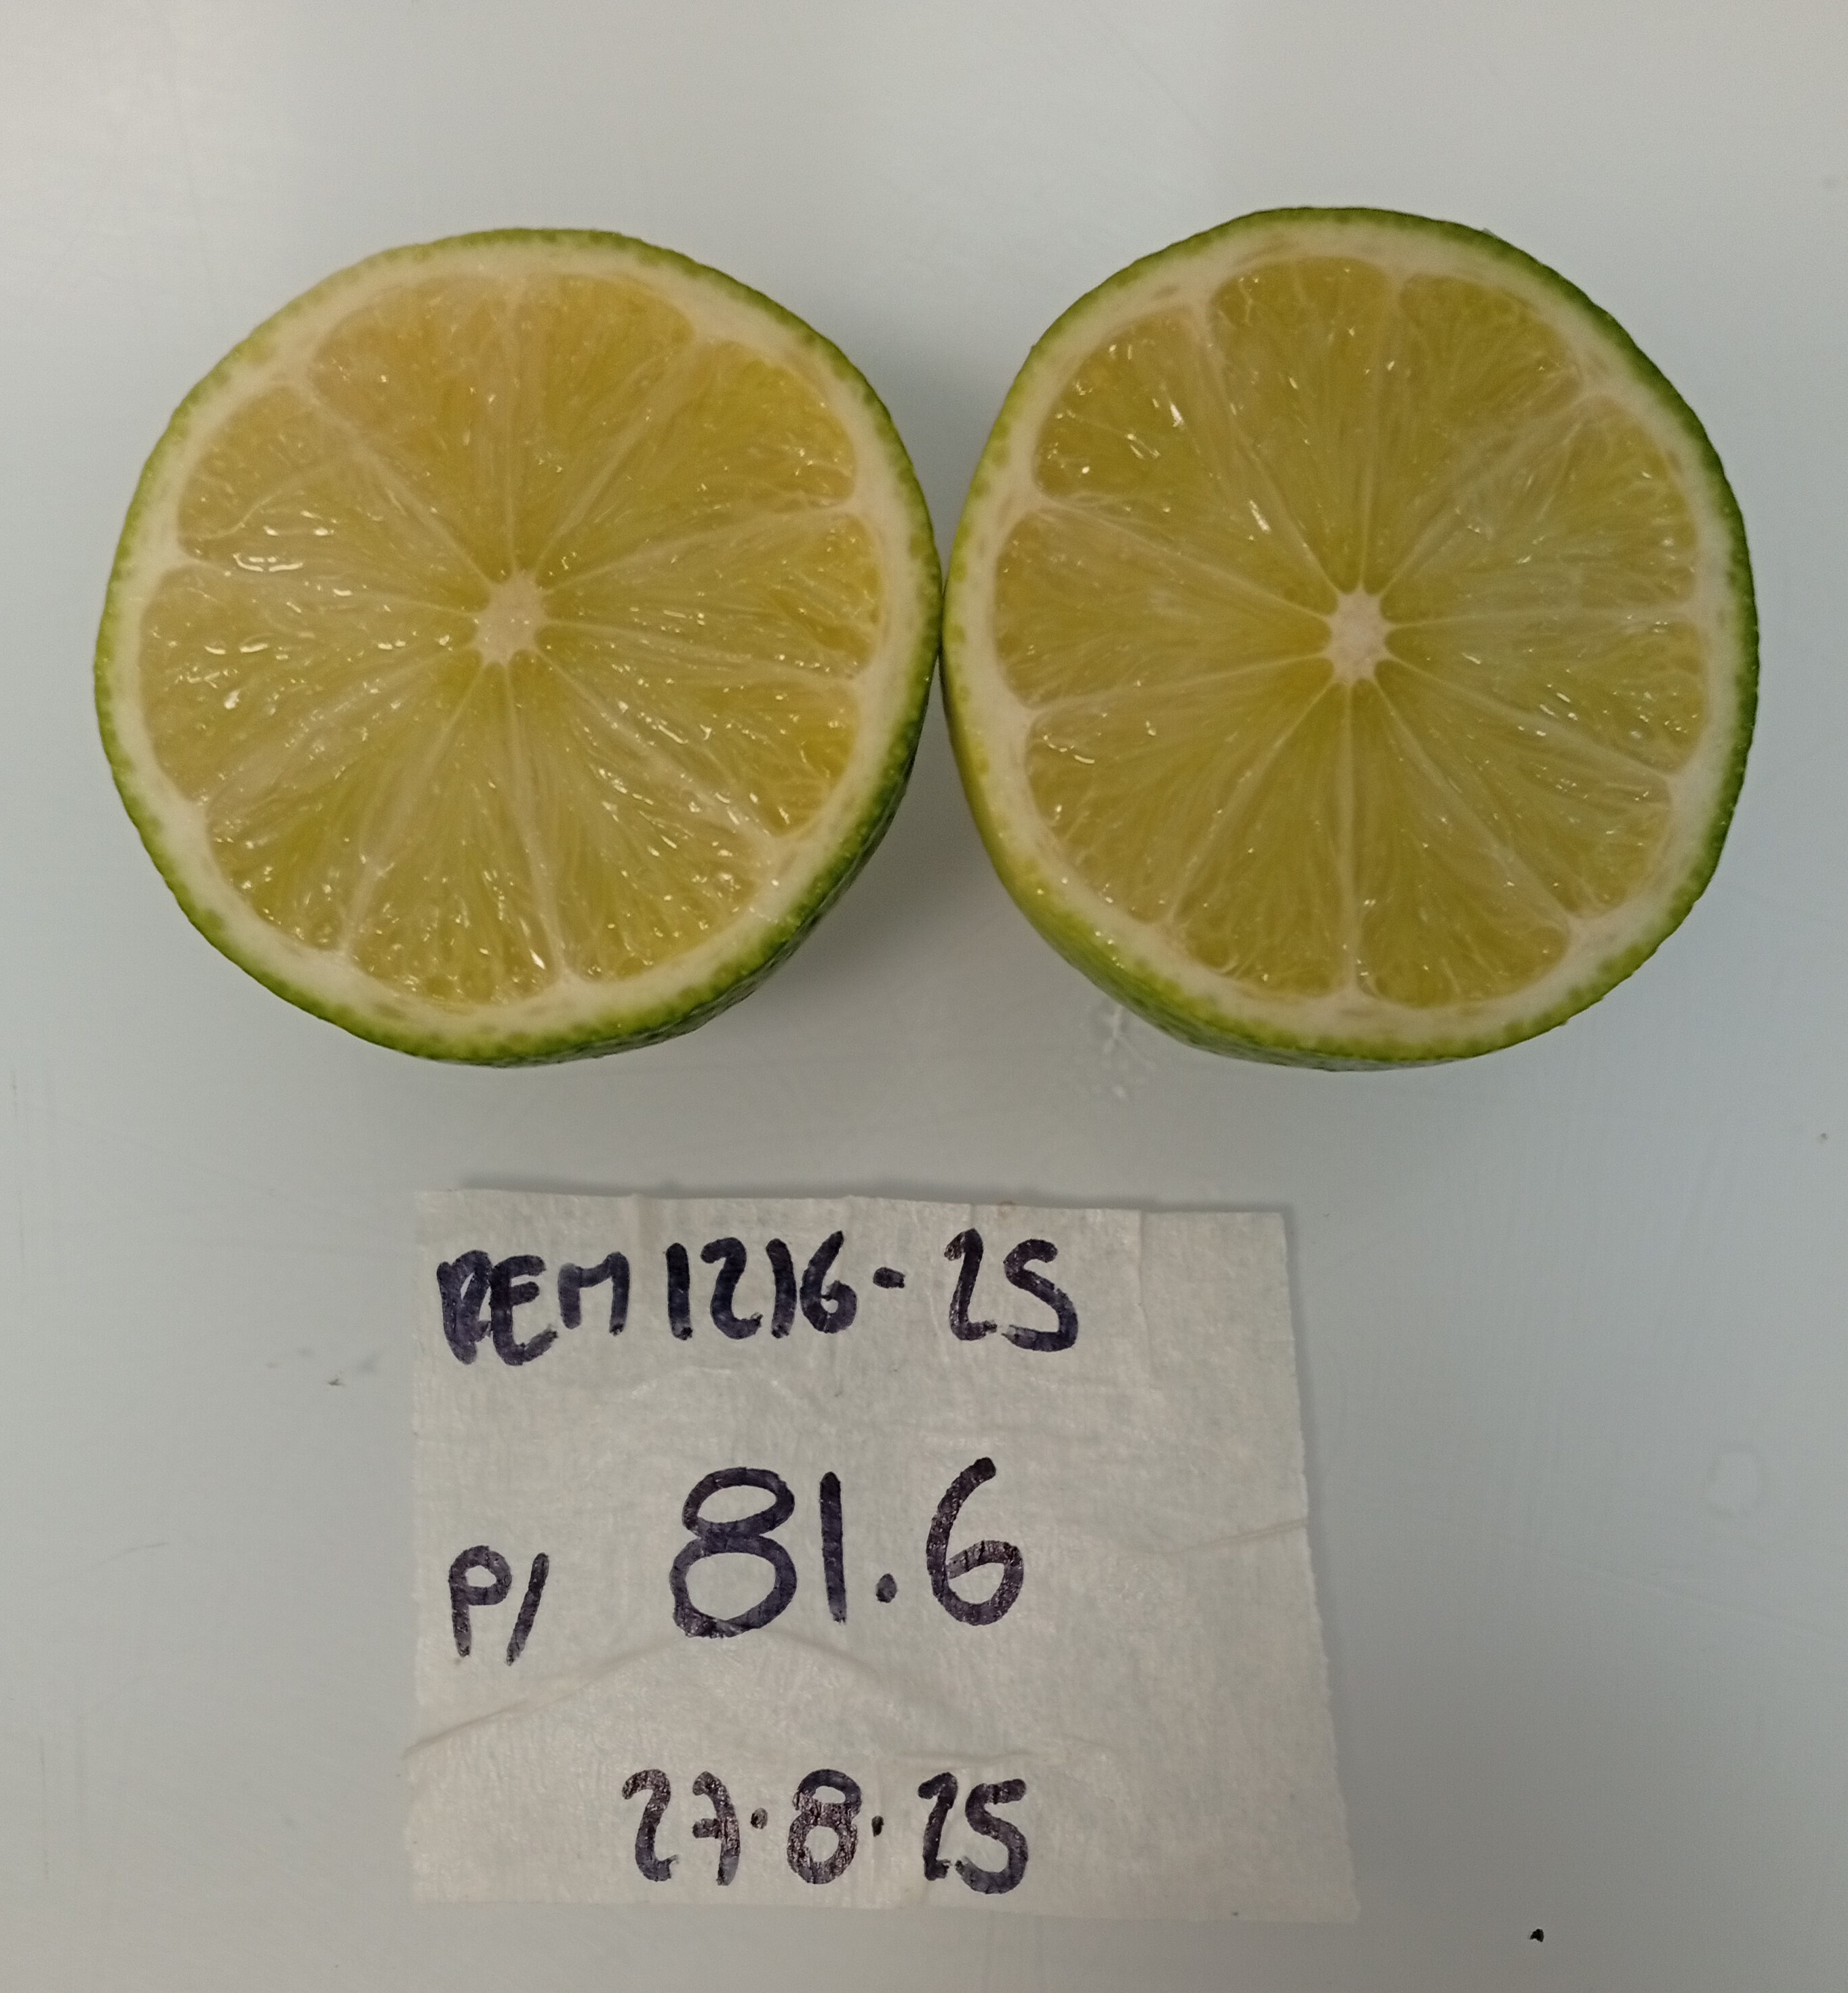 REM 1216-25
P/ 81.6
27.8.25